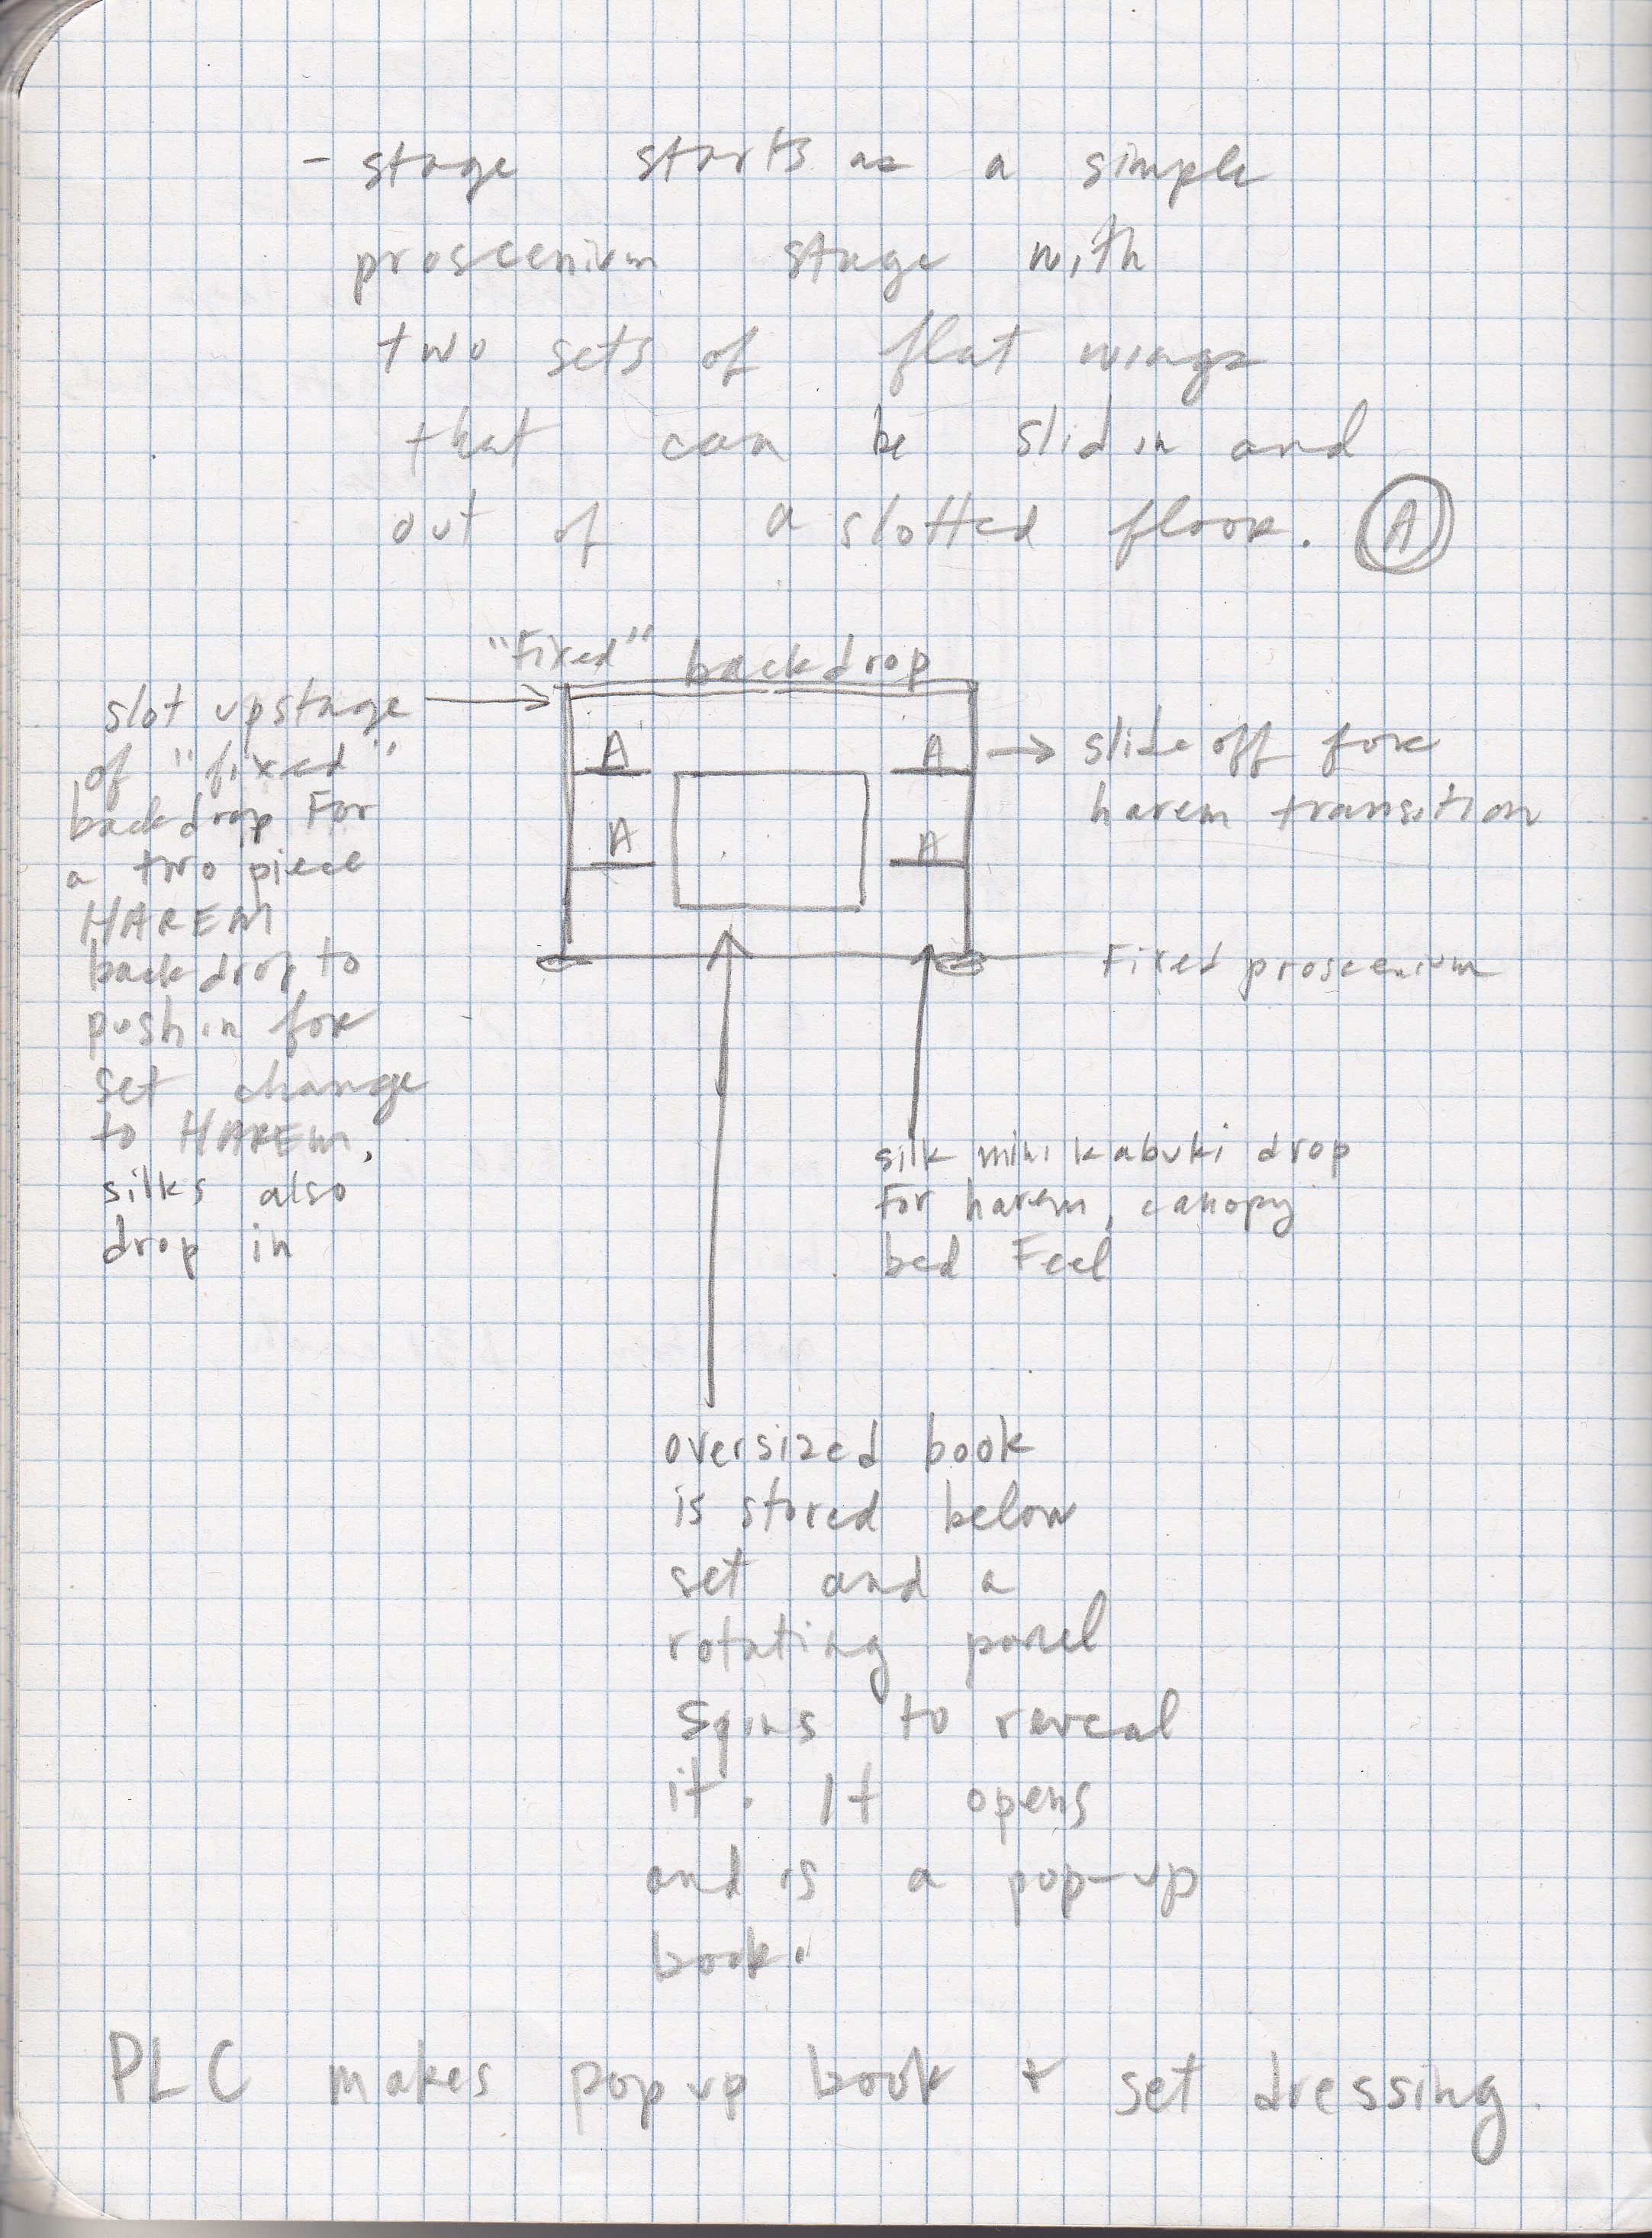 - stage starts as a simple
proscenium stage with
two sets of flat wings
that can be slid in and
out of a slotted floor. A
"Fixed" backdrop
slot upstage
of "fixed"
backdrop For
a two piece
HAREM
backdrop to
push in for
set change
to HAREM,
silks also
drop in
A
A
A
A
slide off for
harem transition
Fixed proscenium
silk mini kabuki drop
For harem, canopy
bed Feel
oversized book
is stored below
set and a
rotating panel
spins to reveal
it. It opens
and is a pop-up
book.
PLC makes pop up book + set dressing.